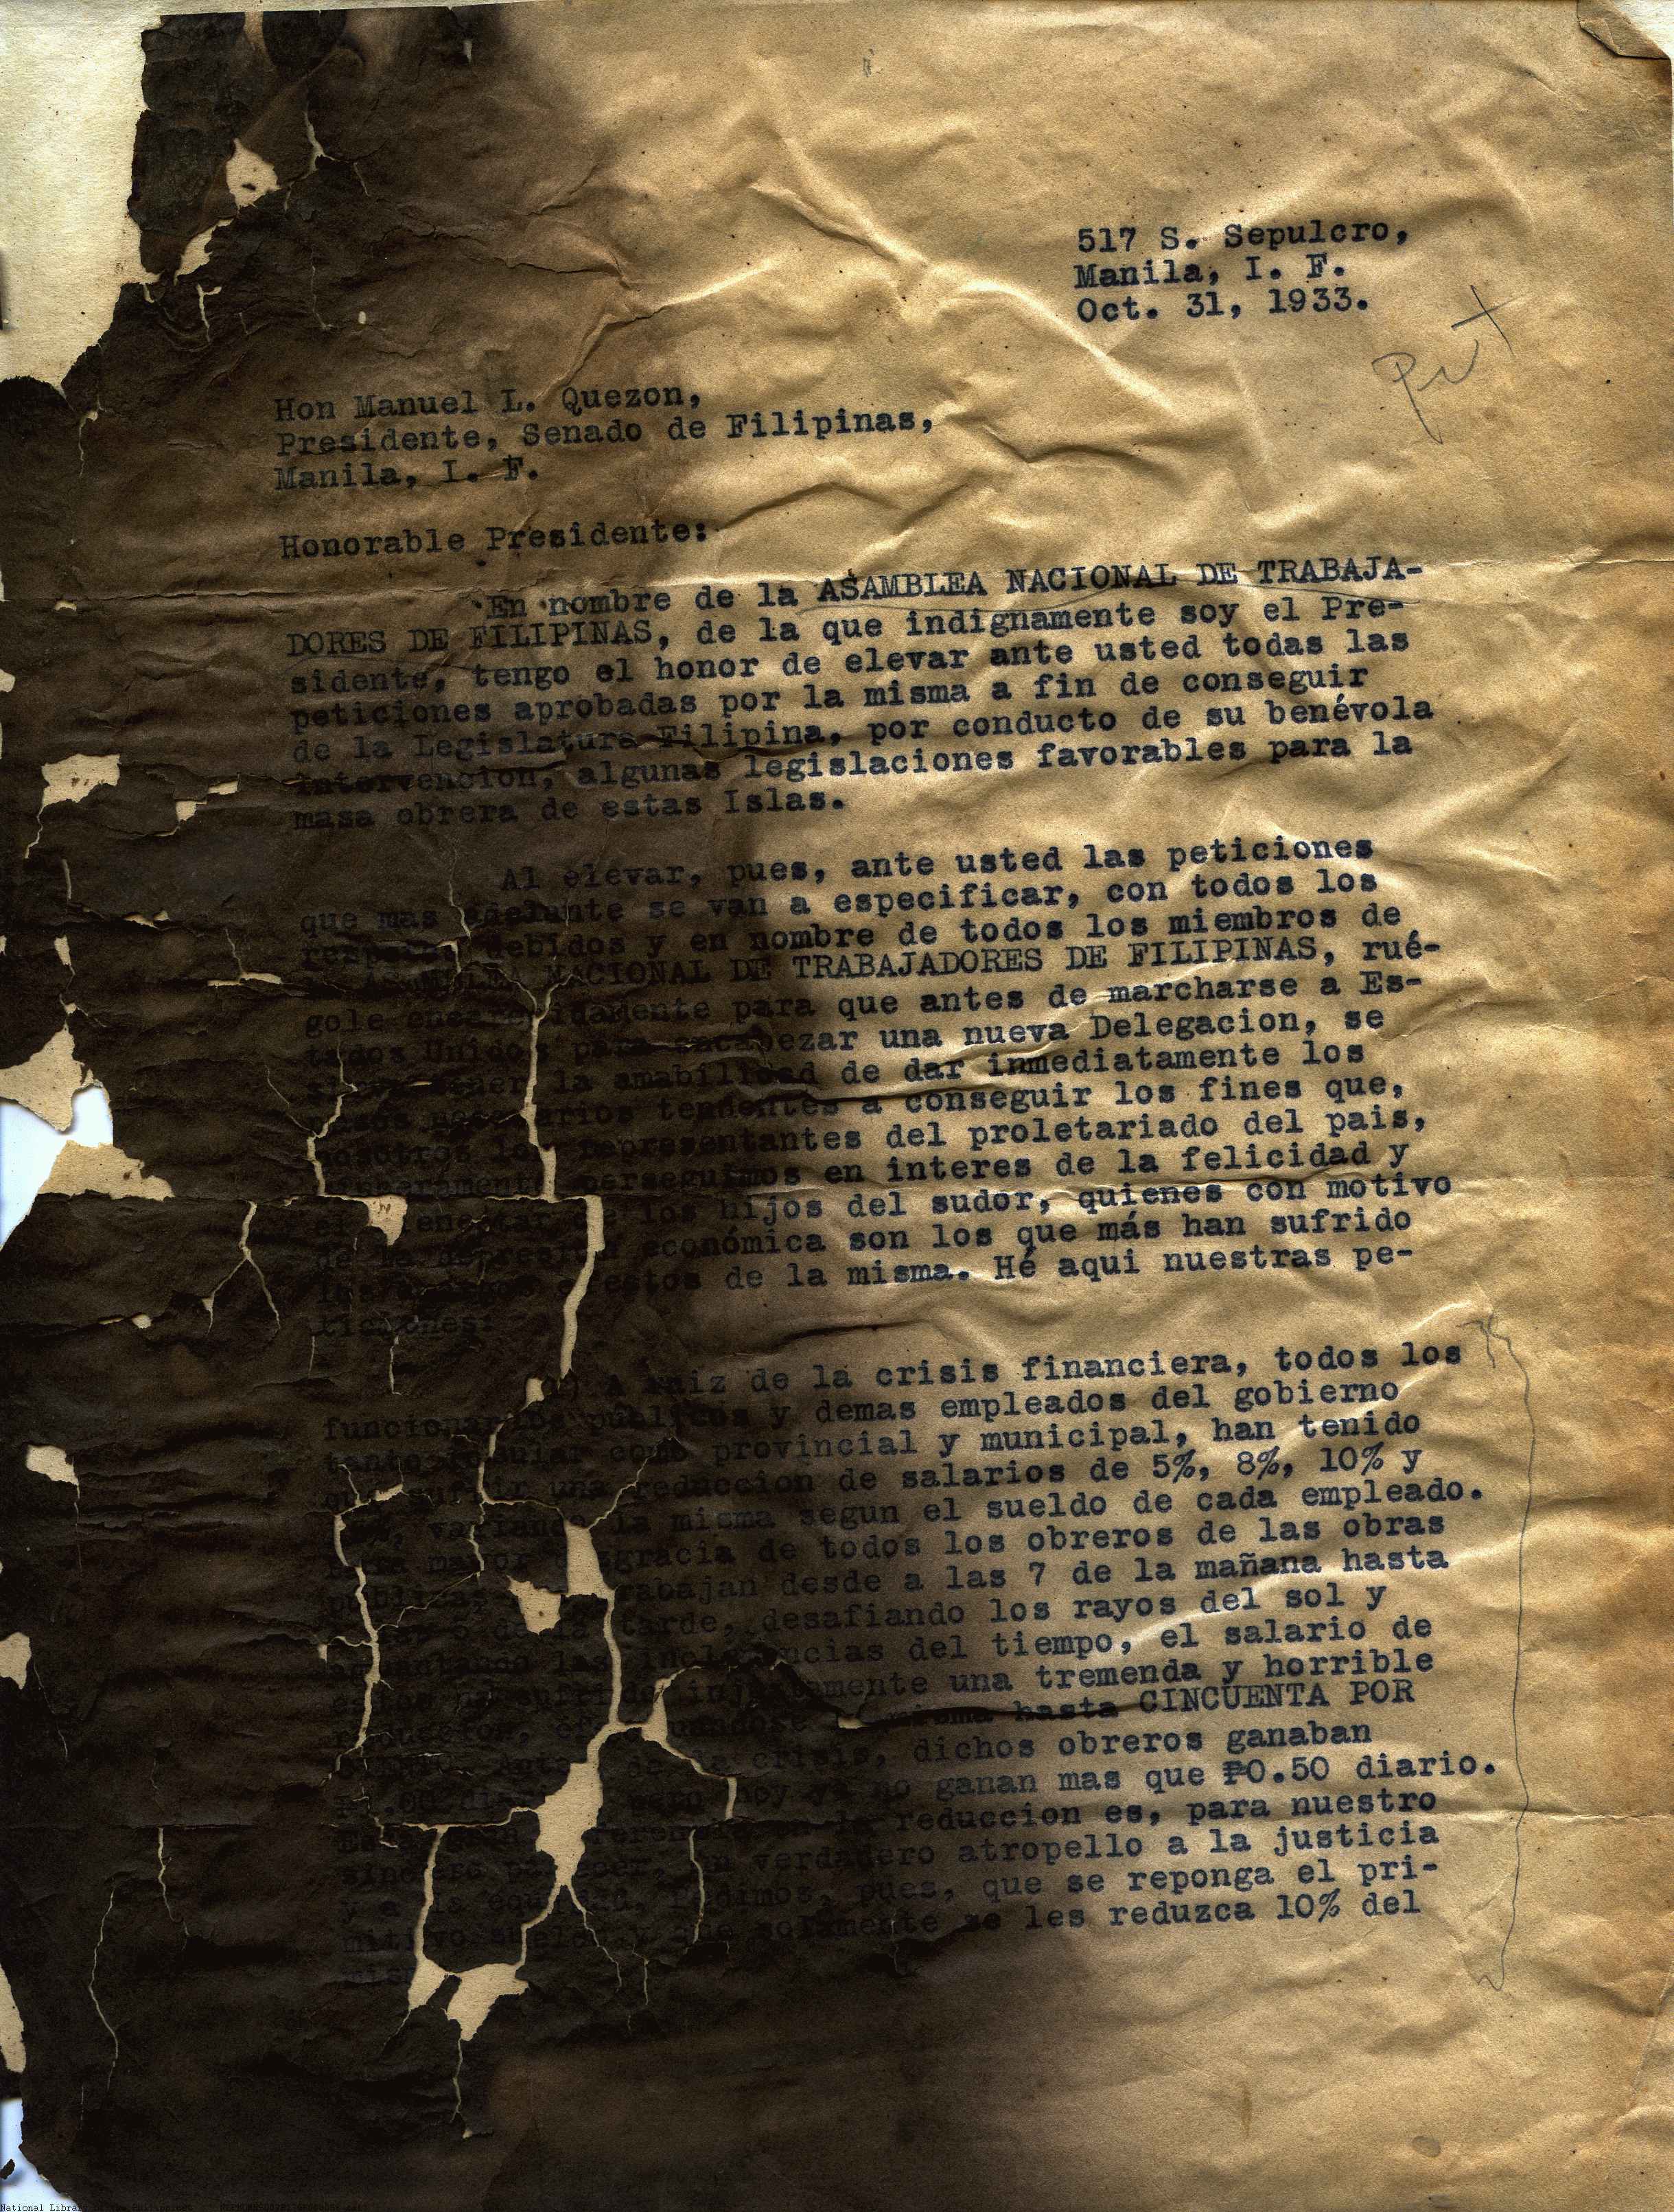 517 S. Sepulcro,
Manila, I. F.
Oct. 31, 1933.
Hon Manuel L. Quezon,
Presidente, Senado de Filipinas,
Manila, I. F.
Honorable Presidente:
En nombre de la ASAMBLEA NACIONAL DE TRABAJA-
DORES DE FILIPINAS, de la que indignamente soy el Pre-
sidente, tengo el honor de elevar ante usted todas las
peticiones aprobadas por la misma a fin de conseguir
de la Legislatura Filipina, por conducto de su benévola
intervencion, algunas legislaciones favorables para la
masa obrera de estas Islas.
Al elevar, pues, ante usted las peticiones
que mas adelante se van a especificar, con todos los
respetos debidos y en nombre de todos los miembros de
ASAMBLEA NACIONAL DE TRABAJADORES DE FILIPINAS, rué-
gole encarecidamente para que antes de marcharse a Es-
tados Unidos para encabezar una nueva Delegacion, se
la amabilidad de dar inmediatamente los
pasos necesarios tendentes a conseguir los fines que,
nosotros los representantes del proletariado del pais,
perseguimos en interes de la felicidad y
bienestar de los hijos del sudor, quienes con motivo
de la depresion económica son los que más han sufrido
de la misma. Hé aqui nuestras pe-
ticiones:
A raiz de la crisis financiera, todos los
funcionarios publicos y demas empleados del gobierno
tanto insular como provincial y municipal, han tenido
que sufrir una reduccion de salarios de 5%, 8%, 10% y
variando la misma segun el sueldo de cada empleado.
Para mayor desgracia de todos los obreros de las obras
publicas que trabajan desde a las 7 de la mañana hasta
de la tarde, desafiando los rayos del sol y
las inclemencias del tiempo, el salario de
estos ha sufrido injustamente una tremenda y horrible
reduccion, la misma hasta CINCUENTA POR
CIENTO. Antes de la crisis, dichos obreros ganaban
pero hoy ya no ganan mas que ₱0.50 diario.
en la reduccion es, para nuestro
sincero parecer, un verdadero atropello a la justicia
y a la equidad. Pedimos, pues, que se reponga el pri-
mitivo sueldo y que solamente se les reduzca 10% del